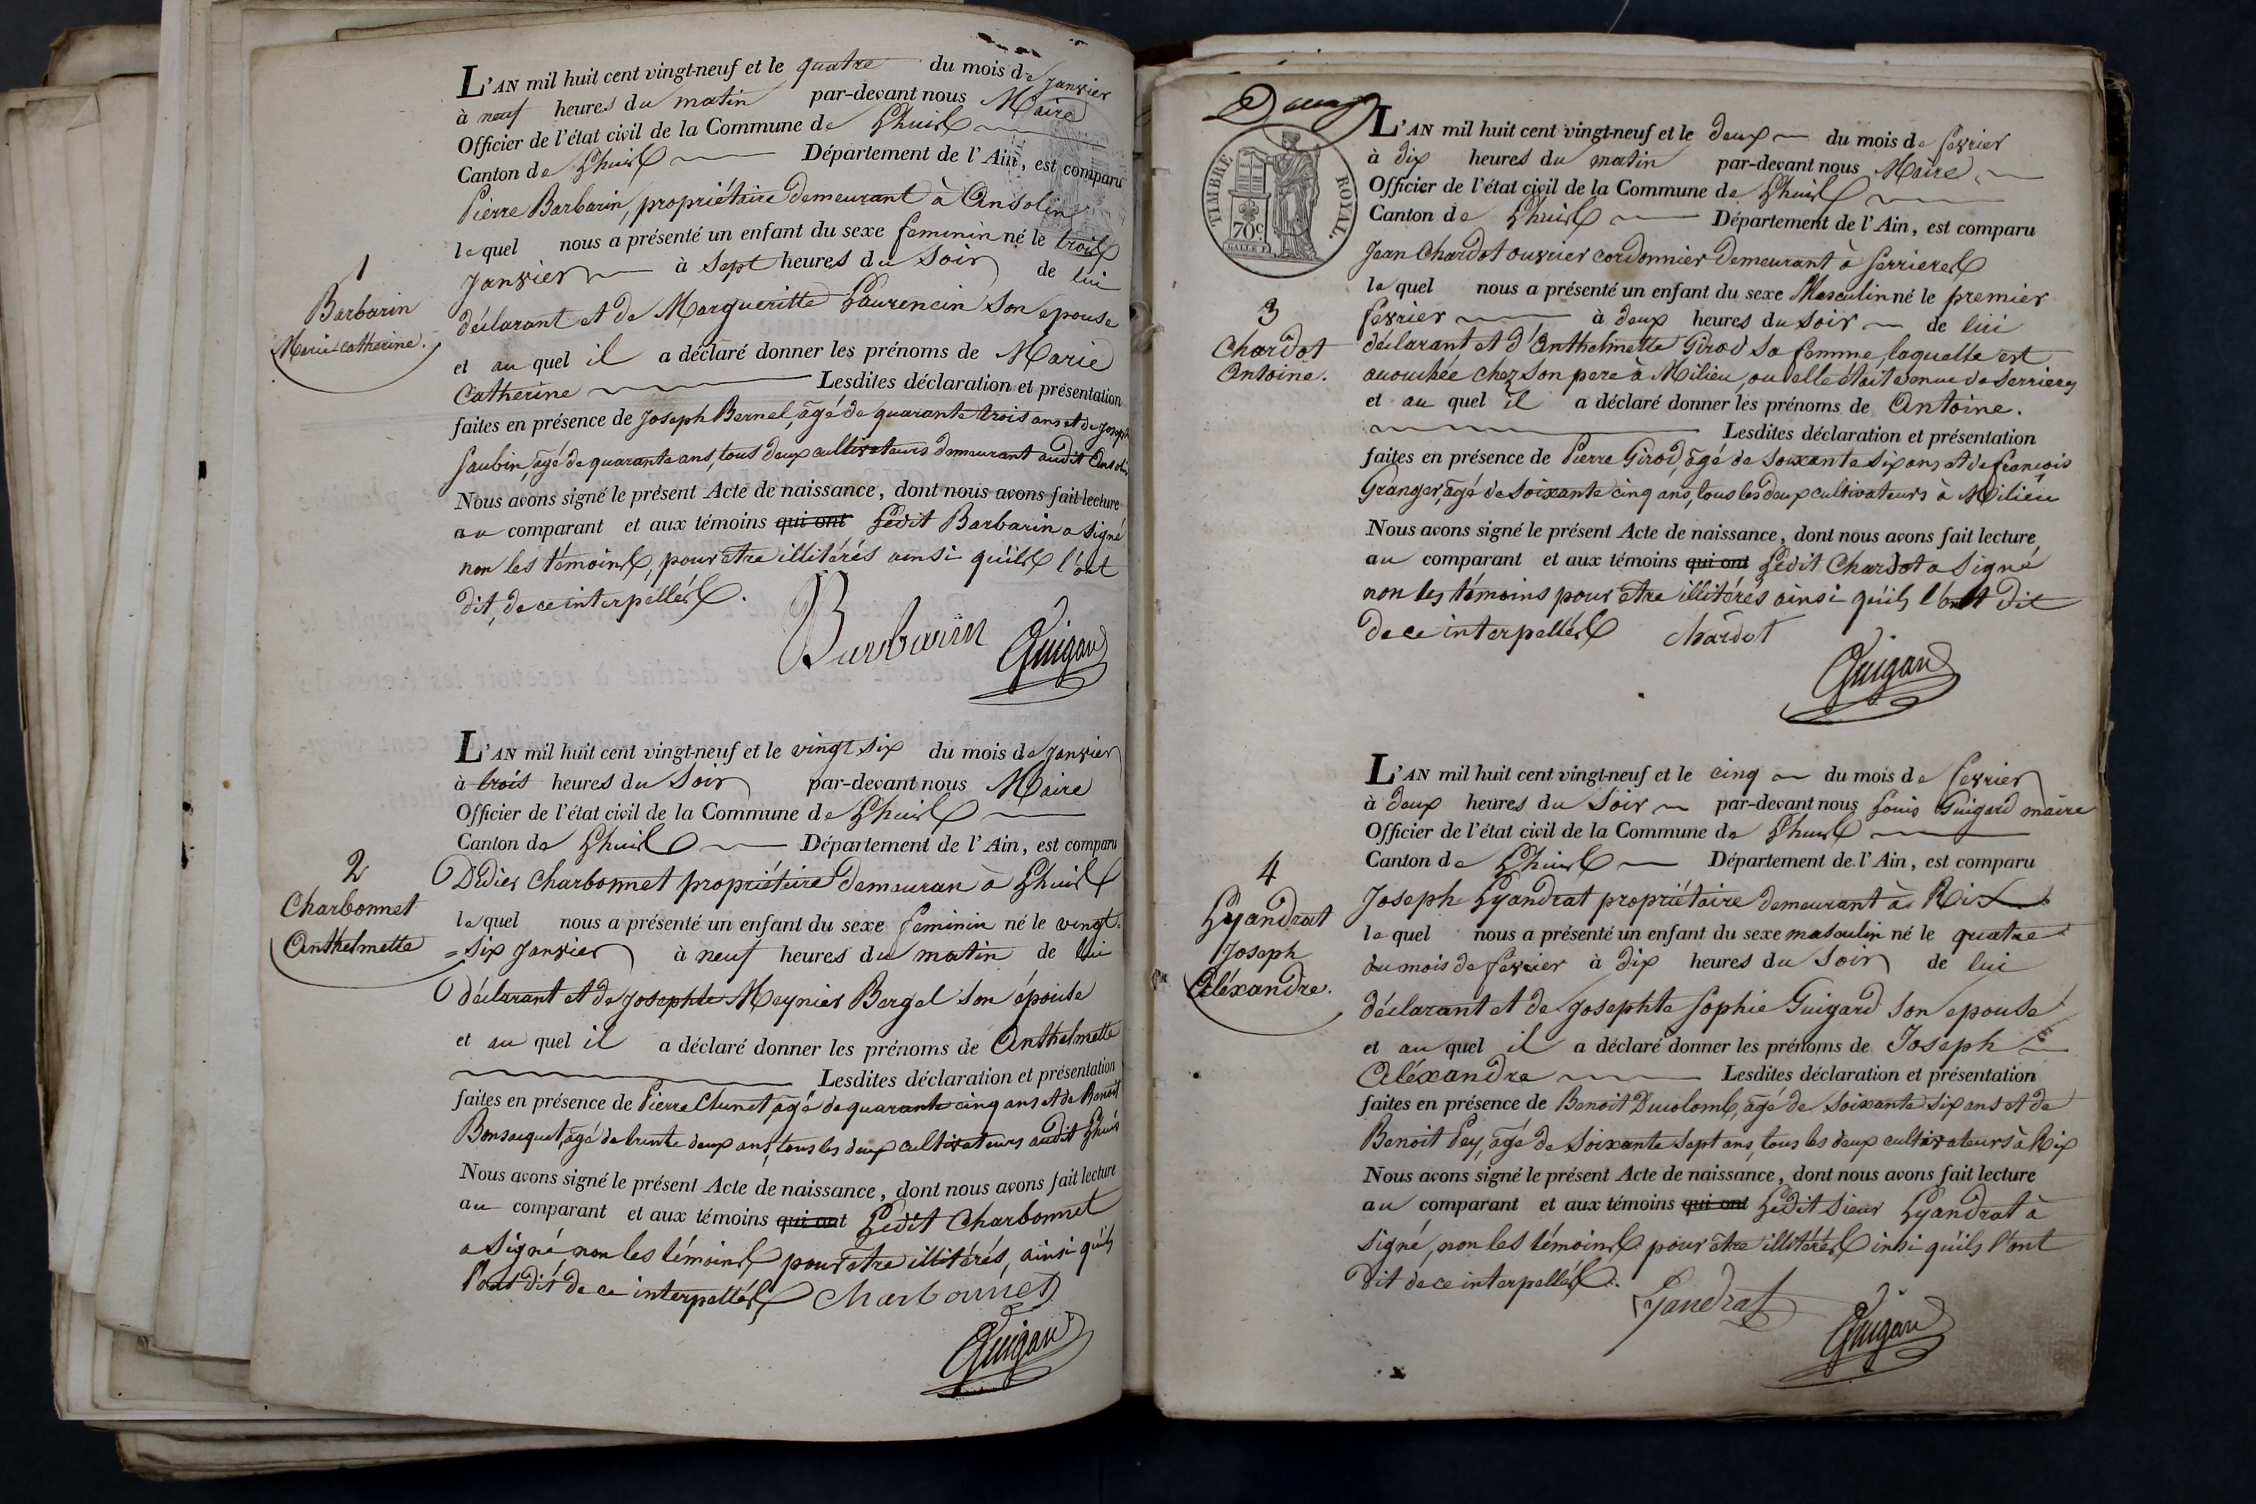 L'AN mil huit cent vingt-neuf et le quatre du mois de Janvier
à neuf heures du matin par-devant nous Maire
Officier de l'état civil de la Commune de Lhuis
Canton de Lhuis Département de l'Ain, est comparu
Pierre Barbarin, propriétaire demeurant à Ansolin
lequel nous a présenté un enfant du sexe feminin né le trois
Janvier à Sept heures du Soir de lui
1
Barbarin
Marie Catherine.
déclarant et de Margueritte Laurencin son epouse
et au quel il a déclaré donner les prénoms de Marie
Catherine Lesdites déclaration et présentation
faites en présence de Joseph Bernel, âgé de quarante trois ans et de Joseph
Saubin, âgé de quarante ans, tous deux cultivateurs demeurant audit Ansolin
Nous avons signé le présent Acte de naissance, dont nous avons fait lecture
au comparant et aux témoins qui ont Ledit Barbarin a signé
non les témoins, pour être illitérés ainsi qu'ils l'ont
dit, de ce interpellés.
Barbarin Guigard
L'AN mil huit cent vingt-neuf et le vingt six du mois de Janvier
à trois heures du Soir par-devant nous Maire
Officier de l'état civil de la Commune de Lhuis
Canton de Lhuis Département de l'Ain, est comparu
2
Charbonnet
Anthelmette
Didier Charbonnet propriétaire demeuran à Lhuis
lequel nous a présenté un enfant du sexe feminin né le vingt-
=six Janvier à neuf heures du matin de lui
déclarant et de Josephte Meynier Bergel son épouse
et au quel il a déclaré donner les prénoms de Anthelmette
Lesdites déclaration et présentation
faites en présence de Pierre Clunet âgé de quarante cinq ans et de Benoit
Bonsacquet, âgé de trente deux ans, tous les deux cultivateurs audit Lhuis
Nous avons signé le présent Acte de naissance, dont nous avons fait lecture
au comparant et aux témoins qui ont Ledit Charbonnet
a signé, non les témoins pour être illitérés, ainsi qu'ils
l'ont dit de ce interpellés Charbonnet
Guigard
TIMBRE ROYAL.
70c
L'AN mil huit cent vingt-neuf et le deux du mois de fevrier
à dix heures du matin par-devant nous Maire
Officier de l'état civil de la Commune de Lhuis
Canton de Lhuis Département de l'Ain, est comparu
Jean Chardot ouvrier cordonnier demeurant à Serrieres
lequel nous a présenté un enfant du sexe Masculin né le premier
3
Chardot
Antoine.
fevrier à deux heures du soir de lui
déclarant et d'Anthelmette Girod sa femme, laquelle est
acouchée chez son pere à Milieu, ou elle était venue de Serrieres
et au quel il a déclaré donner les prénoms de Antoine.
Lesdites déclaration et présentation
faites en présence de Pierre Girod, âgé de soixante six ans et de francois
Granger, âgé de soixante cinq ans, tous les deux cultivateurs à Milieu
Nous avons signé le présent Acte de naissance, dont nous avons fait lecture
au comparant et aux témoins qui ont Ledit Chardot a signé
non les témoins pour être illitérés ainsi qu'ils l'ont dit
de ce interpellés chardot
Guigard
L'AN mil huit cent vingt-neuf et le cinq du mois de fevrier
à deux heures du soir par-devant nous Louis Guigard maire
Officier de l'état civil de la Commune de Lhuis
Canton de Lhuis Département de l'Ain, est comparu
4
Lyandrat
Joseph
Aléxandre.
Joseph Lyandrat propriétaire demeurant à Rix
lequel nous a présenté un enfant du sexe masculin né le quatre
du mois de fevrier à dix heures du Soir de lui
déclarant et de Josephte Sophie Guigard son epouse
et au quel il a déclaré donner les prénoms de Joseph
Aléxandre Lesdites déclaration et présentation
faites en présence de Benoit Ducolomb, âgé de soixante six ans et de
Benoit Pey, âgé de soixante sept ans, tous les deux cultivateurs à Rix
Nous avons signé le présent Acte de naissance, dont nous avons fait lecture
au comparant et aux témoins qui ont Ledit Sieur Lyandrat à
signé, non les témoins pour être illitérés insi qu'ils l'ont
dit de ce interpellés.
Lyandrat Guigard